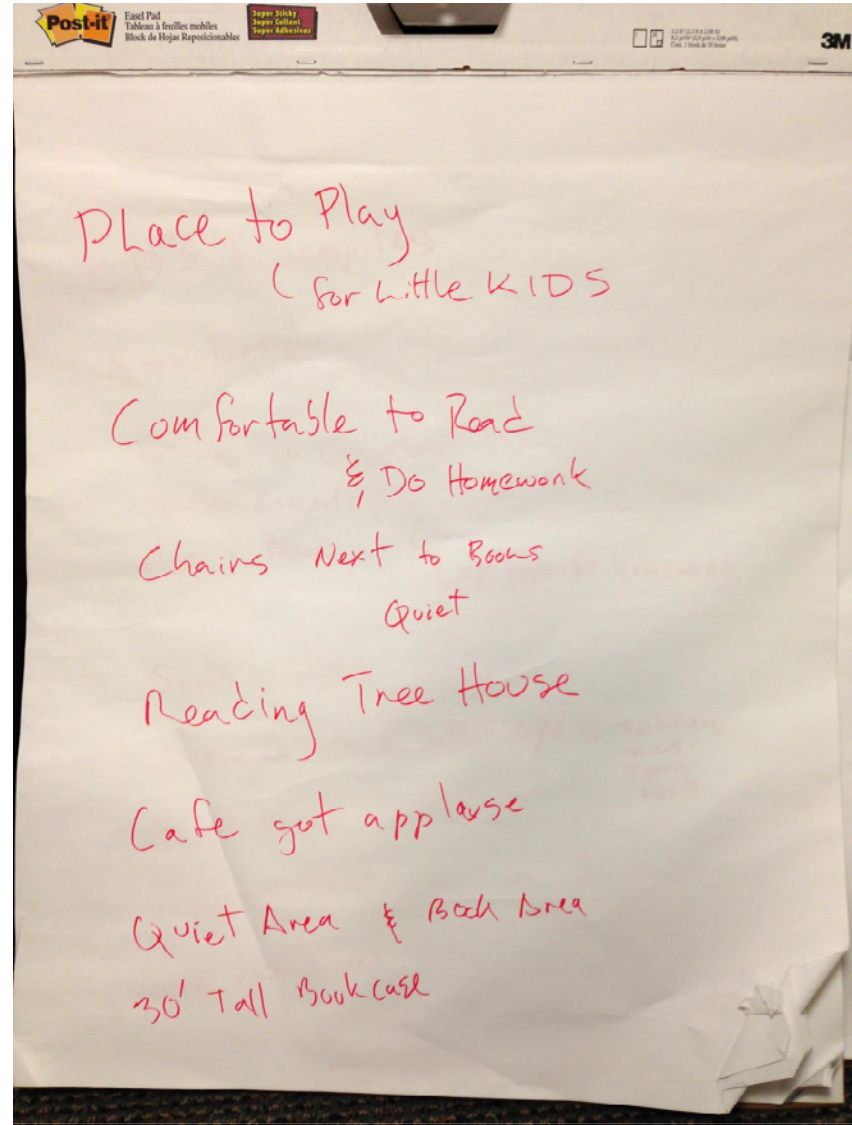 Post-it
Easel Pad
Tableau à feuilles mobiles
Block de Hojas Reposicionables
Super Sticky
Super Collant
Super Adhesivas
3M
Place to Play
(for Little KIDS
Comfortable to Read
& Do Homework
Chairs Next to Books
Quiet
Reading Tree House
Cafe got applause
Quiet Area & Book Area
30' Tall Bookcase